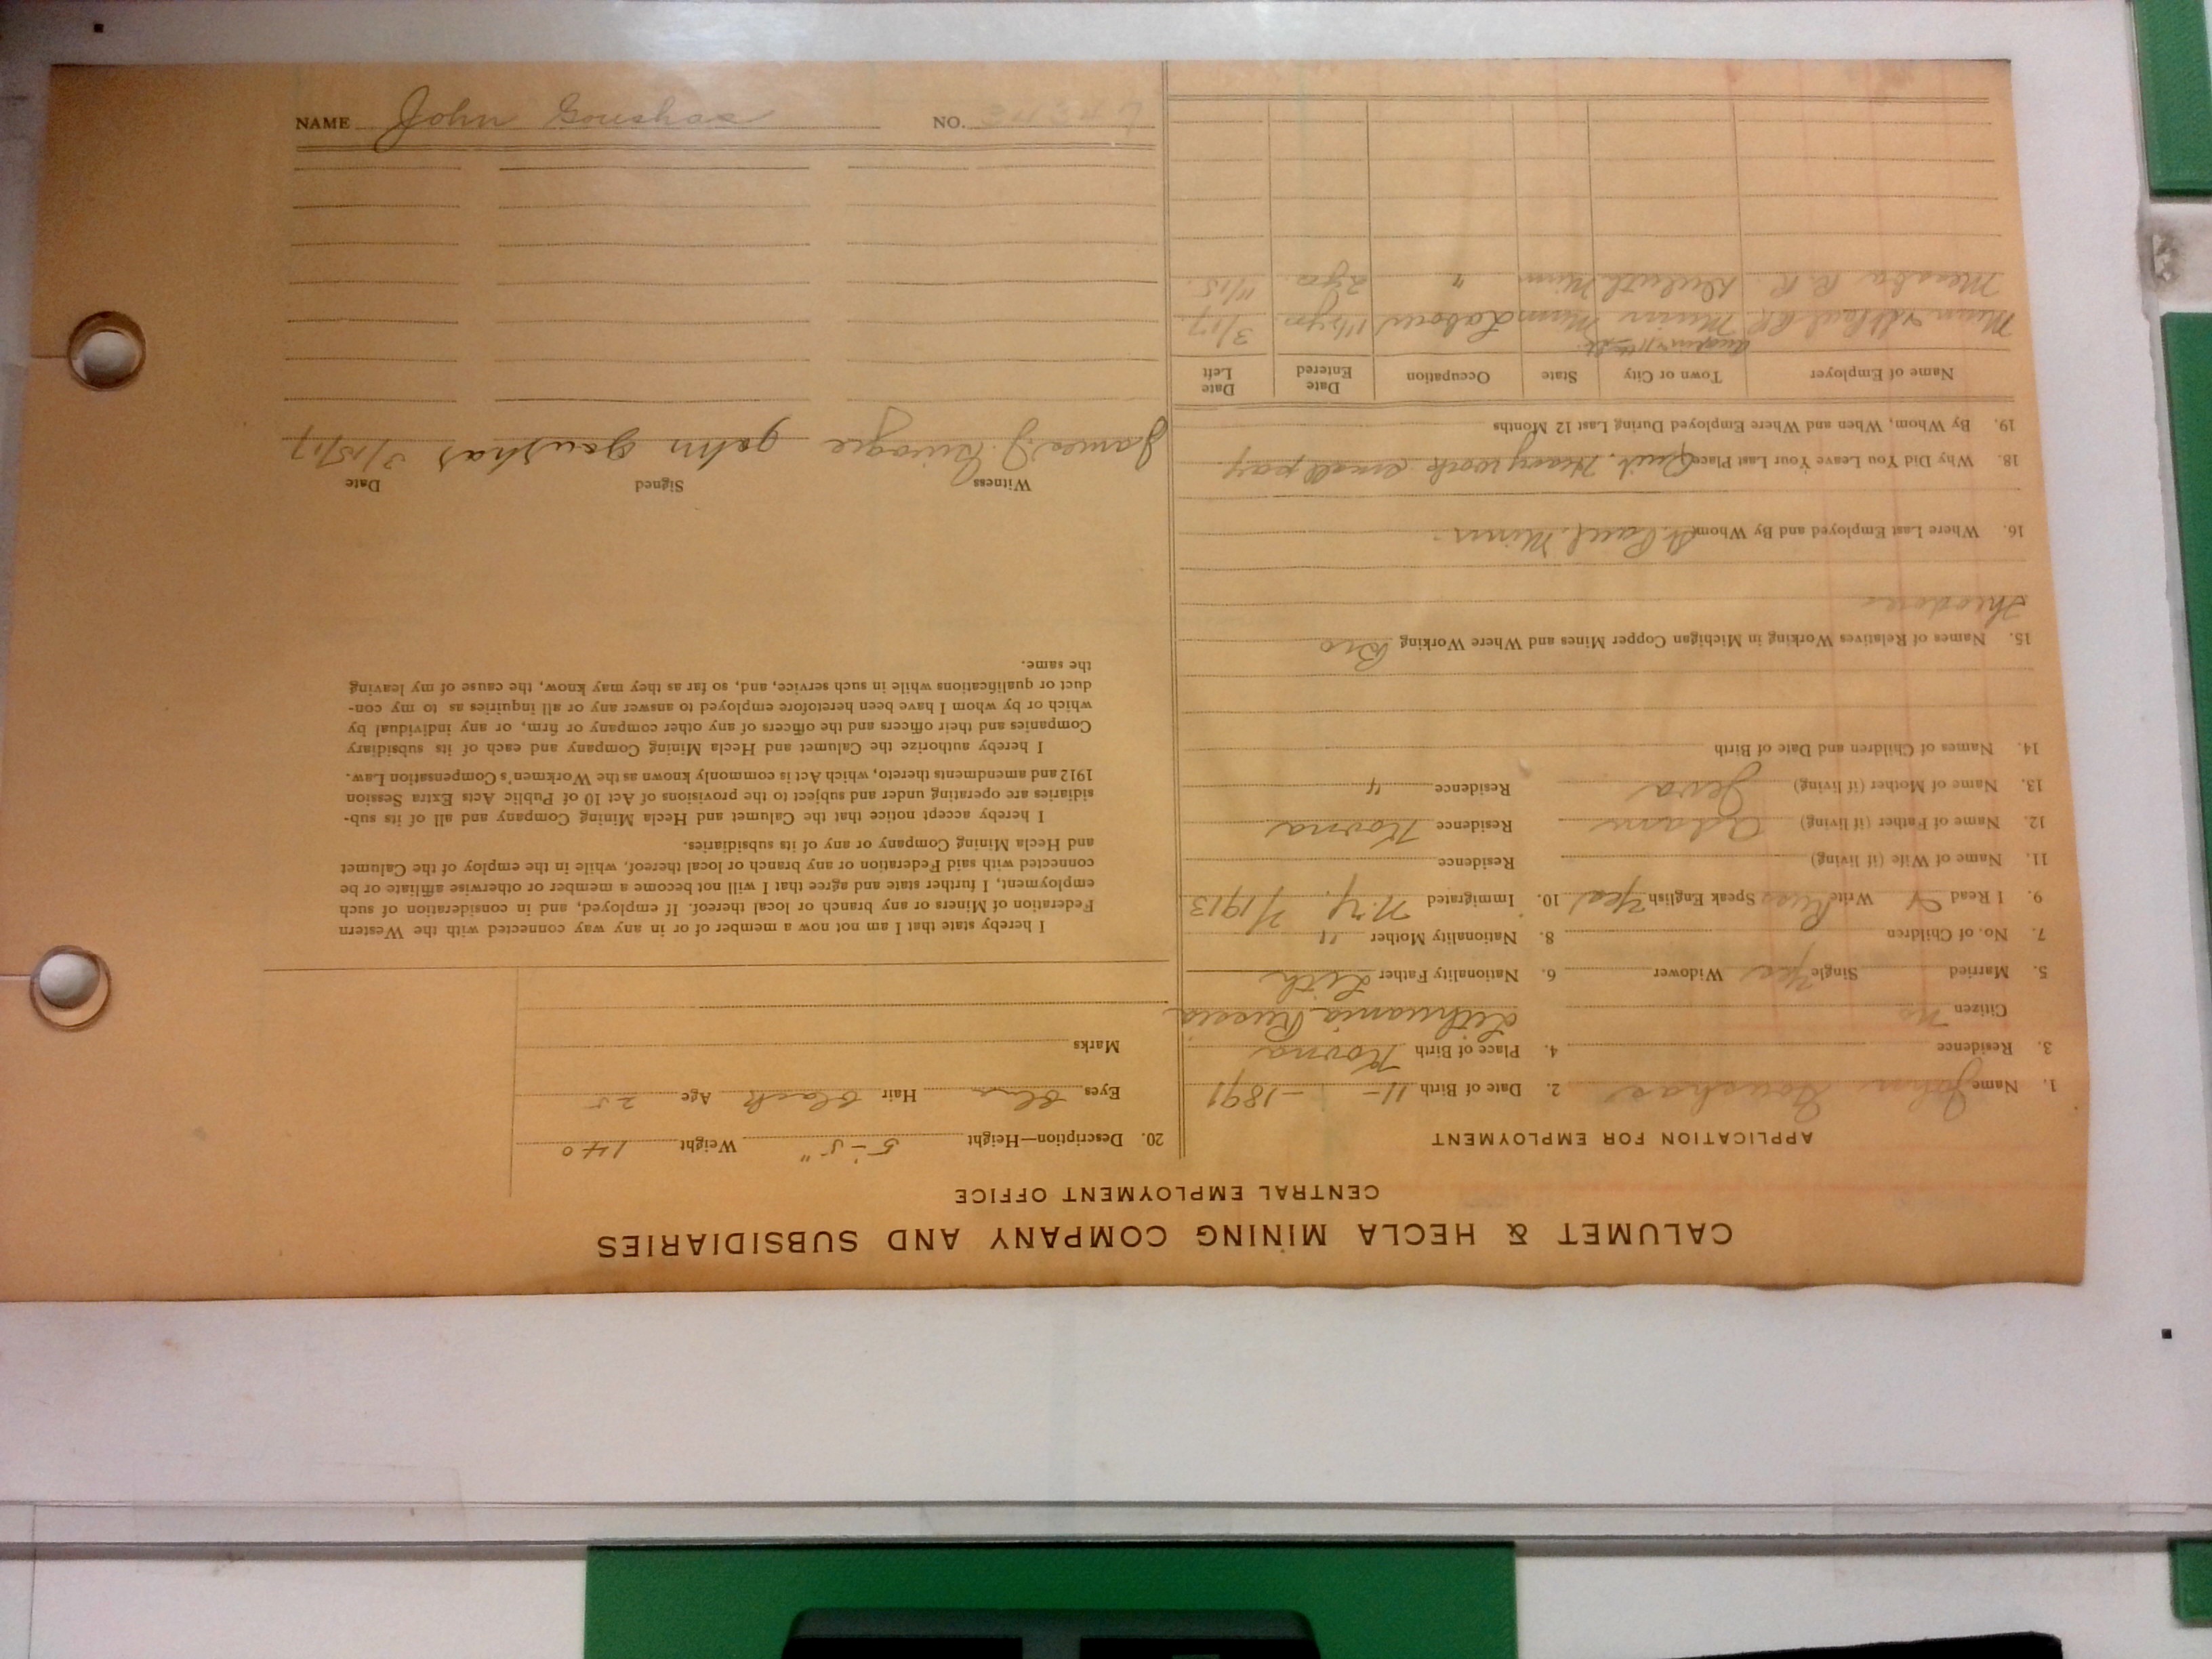 CALUMET & HECLA MINING COMPANY AND SUBSIDIARIES
CENTRAL EMPLOYMENT OFFICE
APPLICATION FOR EMPLOYMENT
1. Name John Goushas 2. Date of Birth 11- -1891
3. Residence 4. Place of Birth Kovna
Citizen no Lithuania Russia
5. Married Single Yes Widower 6. Nationality Father Lith
7. No. of Children 8. Nationality Mother "
9. I Read Write Russ Speak English Yes 10. Immigrated N.Y. 7/1913
11. Name of Wife (if living) Residence
12. Name of Father (if living) Adam Residence Kovna
13. Name of Mother (if living) Residence "
14. Names of Children and Date of Birth
15. Names of Relatives Working in Michigan Copper Mines and Where Working Bro
Theodore
16. Where Last Employed and By Whom St. Paul, Minn.
18. Why Did You Leave Your Last Place Quit. Heavy work small pay
19. By Whom, When and Where Employed During Last 12 Months
Name of Employer Town or City State Occupation Date Entered Date Left
Minn & St Paul RR Minn Laborer 1½ yrs 3/17
R.R. Duluth Minn " 2 yrs. 11/15
20. Description—Height 5'-5" Weight 140
Eyes Blue Hair black Age 25
Marks
I hereby state that I am not now a member of or in any way connected with the Western
Federation of Miners or any branch or local thereof. If employed, and in consideration of such
employment, I further state and agree that I will not become a member or otherwise affiliate or be
connected with said Federation or any branch or local thereof, while in the employ of the Calumet
and Hecla Mining Company or any of its subsidiaries.
I hereby accept notice that the Calumet and Hecla Mining Company and all of its sub-
sidiaries are operating under and subject to the provisions of Act 10 of Public Acts Extra Session
1912 and amendments thereto, which Act is commonly known as the Workmen's Compensation Law.
I hereby authorize the Calumet and Hecla Mining Company and each of its subsidiary
Companies and their officers and the officers of any other company or firm, or any individual by
which or by whom I have been heretofore employed to answer any or all inquiries as to my con-
duct or qualifications while in such service, and, so far as they may know, the cause of my leaving
the same.
Witness Signed Date
James J. john goushas 3/15/17
NAME John Goushas NO.